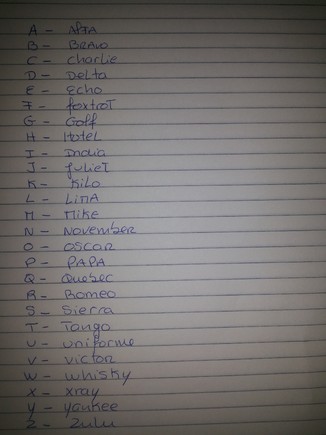 A - Alfa
B - Bravo
C - charlie
D - Delta
E - Echo
F - foxtrot
G - Golf
H - Hotel
I - India
J - juliet
K - Kilo
L - Lima
M - Mike
N - November
O - oscar
P - PAPA
Q - Quebec
R - Romeo
S - Sierra
T - Tango
U - uniforme
V - victor
W - whisky
X - xray
Y - yankee
Z - Zulu